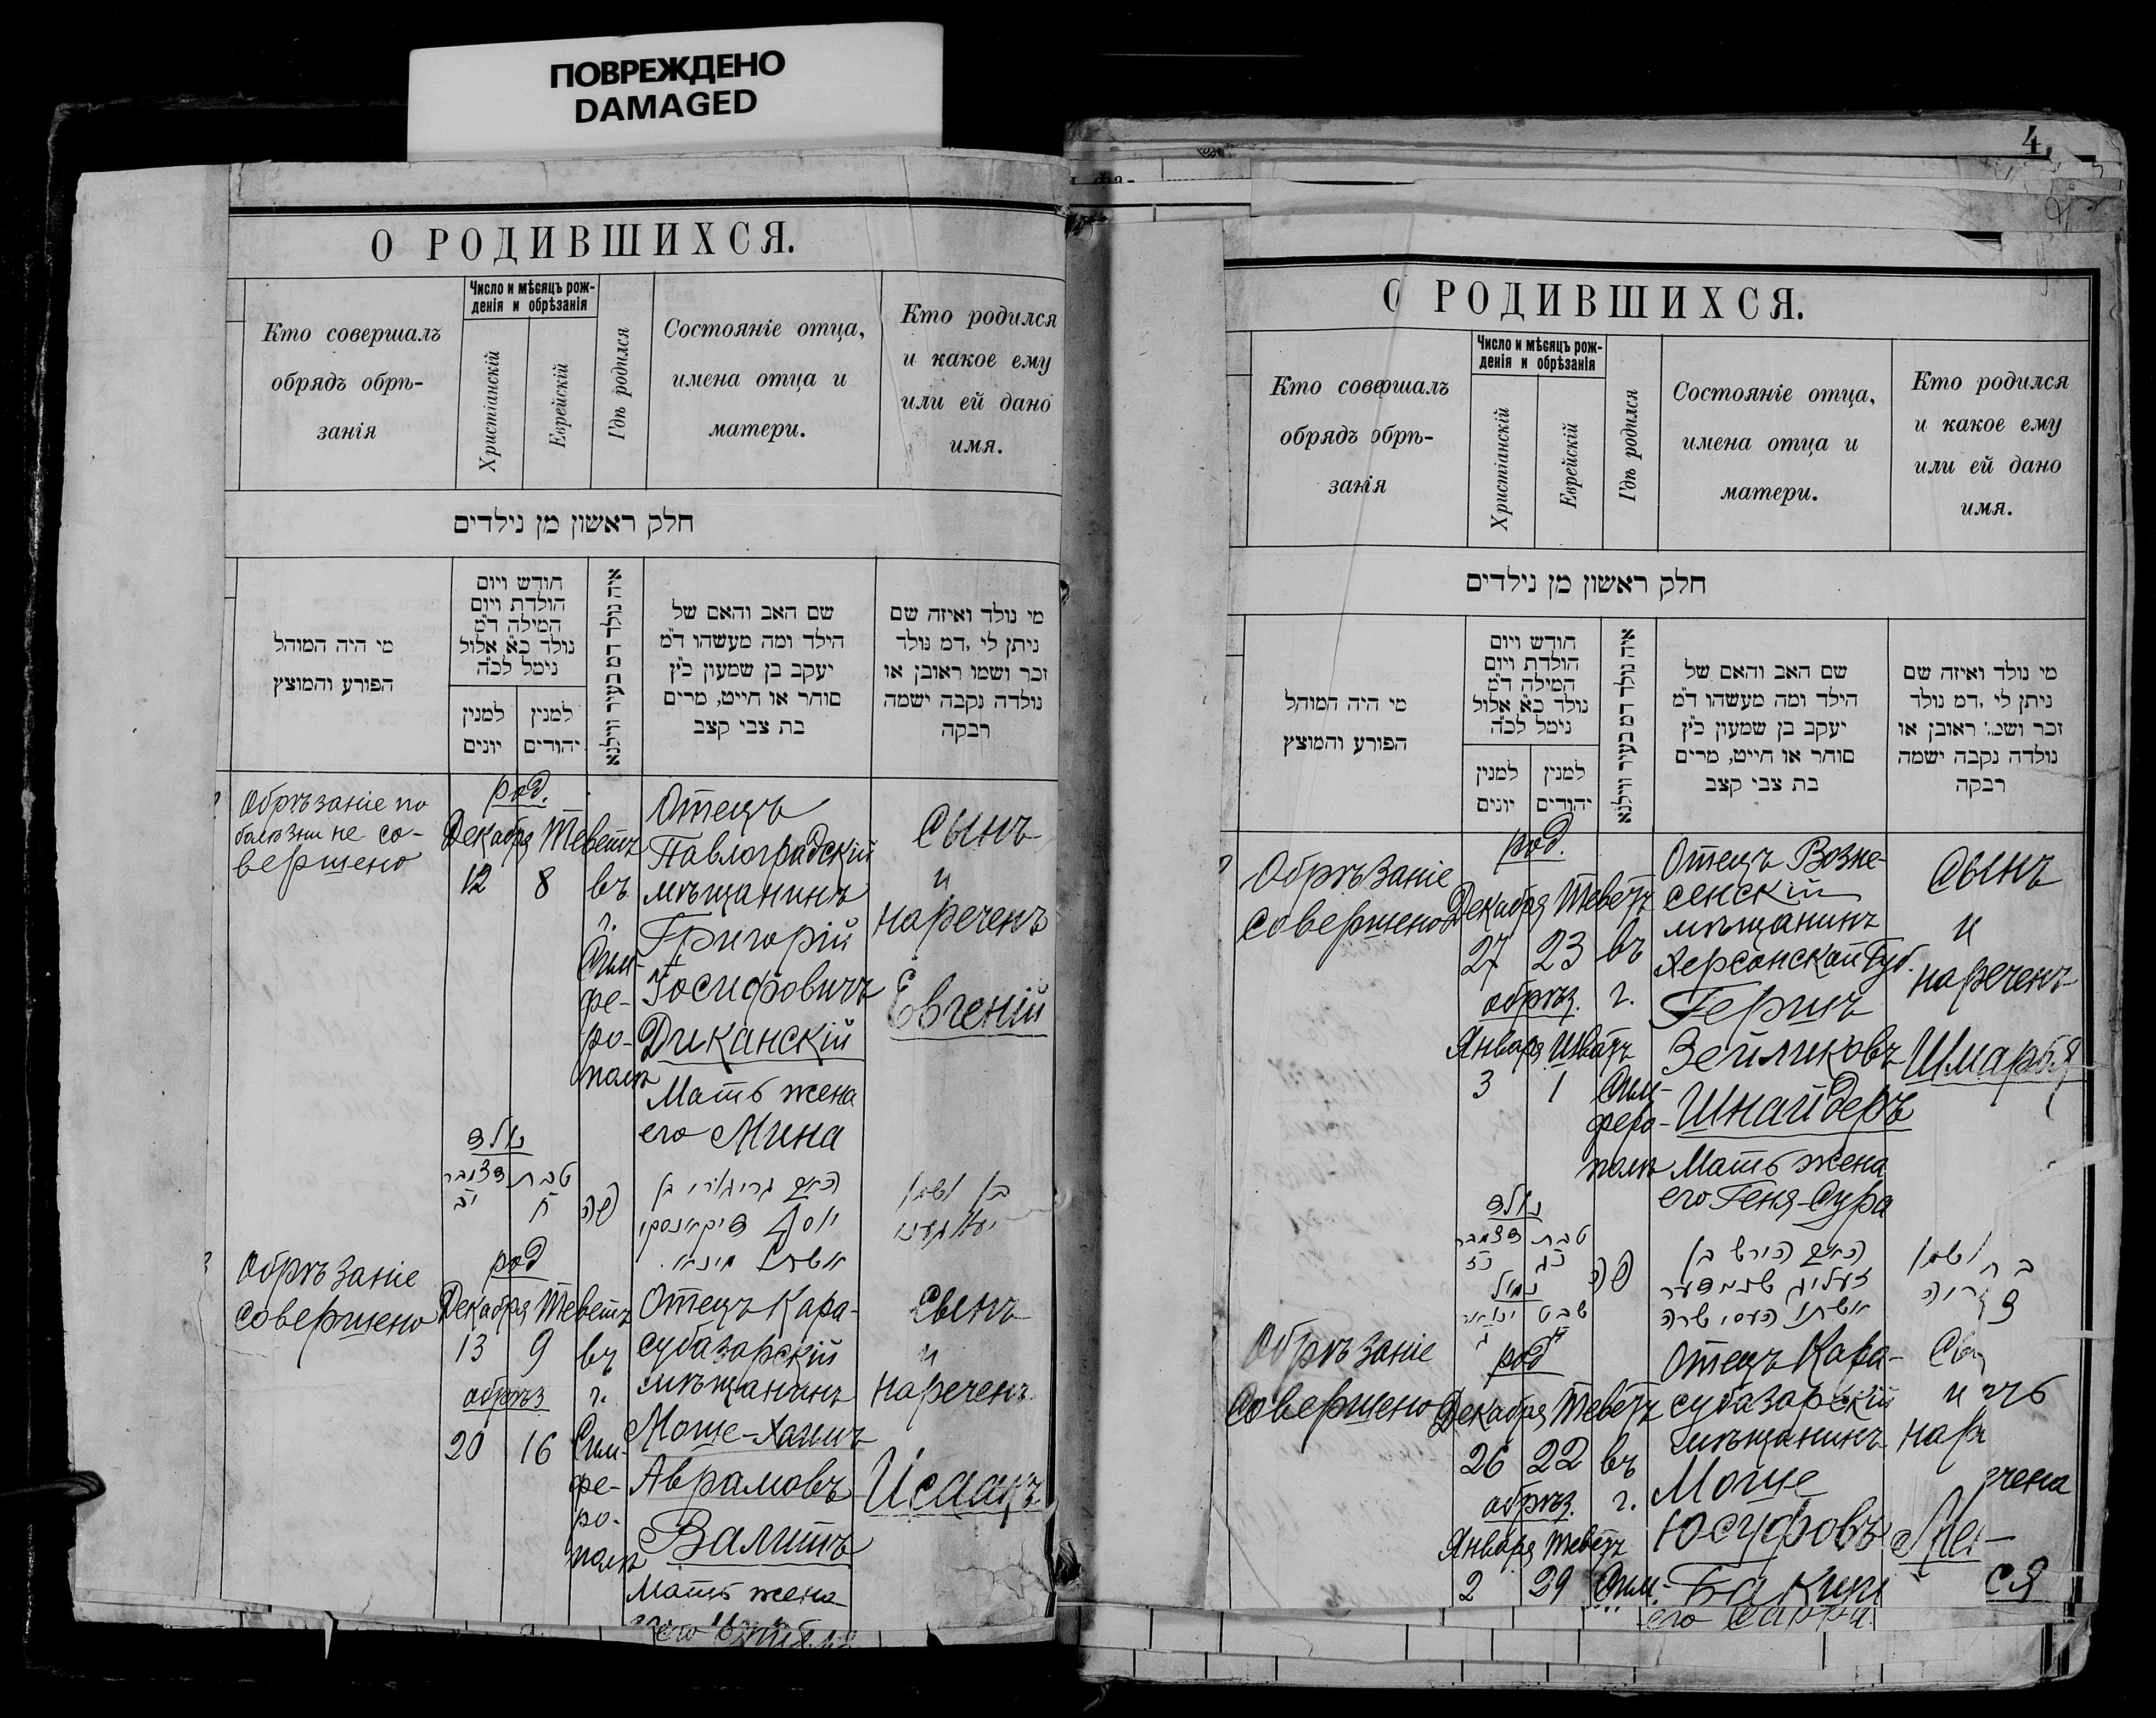 ПОВРЕЖДЕНО
DAMAGED
О РОДИВШИХСЯ.
Кто совершалъ
обрядъ обрѣ-
занія
Число и мѣсяцъ рож-
денія и обрѣзанія
Христіанскій
Еврейскій
Гдѣ родился
Состояніе отца,
имена отца и
матери.
Кто родился
и какое ему
или ей дано
имя.
חלק ראשון מן נילדים
מי היה המוהל
הפורע והמוצץ
חודש ויום
הולדת ויום
המילה ד״מ
נולד כ״א אלול
נימל לכ״ה
למנין
יונים
למנין
יהודים
איה נולד דמ בעיר ווילנא
שם האב והאם של
הילד ומה מעשהו ד״מ
יעקב בן שמעון כ״ץ
סוחר או חייט, מרים
בת צבי קצב
מי נולד ואיזה שם
ניתן לי, דמ נולד
זכר ושמו ראובן או
נולדה נקבה ישמה
רבקה
Обрѣзаніе по
болѣзни не со-
вершено
род.
Декабря Теветъ
12 8
въ
г.
Сим-
фе-
ро-
полѣ
Отецъ
Павлоградскій
мѣщанинъ
Григорій
Іосифовичъ
Диканскій
Мать жена
его Мина
Сынъ
и
нареченъ
Евгеній
נולד
טבת דצמבר
ח יב
פה
האב גריגורי בן
יוסף דיקאנסקי
אשתו מינא
בן ושמו
Обрѣзаніе
совершено
род
Декабря Теветъ
13 9
обрѣз
20 16
въ
г.
Сим-
фе-
ро-
полѣ
Отецъ Кара-
субазарскій
мѣщанинъ
Моше-Хаимъ
Аврамовъ
Валитъ
Мать жена
его
Сынъ
и
нареченъ
Исаакъ
4
О РОДИВШИХСЯ.
Кто совершалъ
обрядъ обрѣ-
занія
Число и мѣсяцъ рож-
денія и обрѣзанія
Христіанскій
Еврейскій
Гдѣ родился
Состояніе отца,
имена отца и
матери.
Кто родился
и какое ему
или ей дано
имя.
חלק ראשון מן נילדים
מי היה המוהל
הפורע והמוצץ
חודש ויום
הולדת ויום
המילה ד״מ
נולד כ״א אלול
נימל לכ״ה
למנין
יונים
למנין
יהודים
איה נולד דמ בעיר ווילנא
שם האב והאם של
הילד ומה מעשהו ד״מ
יעקב בן שמעון כ״ץ
סוחר או חייט, מרים
בת צבי קצב
מי נולד ואיזה שם
ניתן לי, דמ נולד
זכר ושמ. ראובן או
נולדה נקבה ישמה
רבקה
Обрѣзаніе
совершено
род.
Декабря Теветъ
27 23
обрѣз.
Января Шватъ
3 1
въ
г.
Сим-
феро-
полѣ
Отецъ Возне-
сенскій
мѣщанинъ
Херсонской Губ.
Гершъ
Зейликовъ
Шнайдеръ
Мать жена
его Геня-Сура
Сынъ
и
нареченъ
Шмарья
נולד
טבת דצמבר
כג כז
נמול
שבט ינואר
פה
האב הירש בן
זעליג שניידער
אשתו העניי שרה
ושמו
Обрѣзаніе
Совершено
род
Декабря Теветъ
26 22
обрѣз.
Января Теветъ
2 29
въ
г.
Сим-
Отецъ Кара-
субазарскій
мѣщанинъ
Моше
Юсуфовъ
его
и